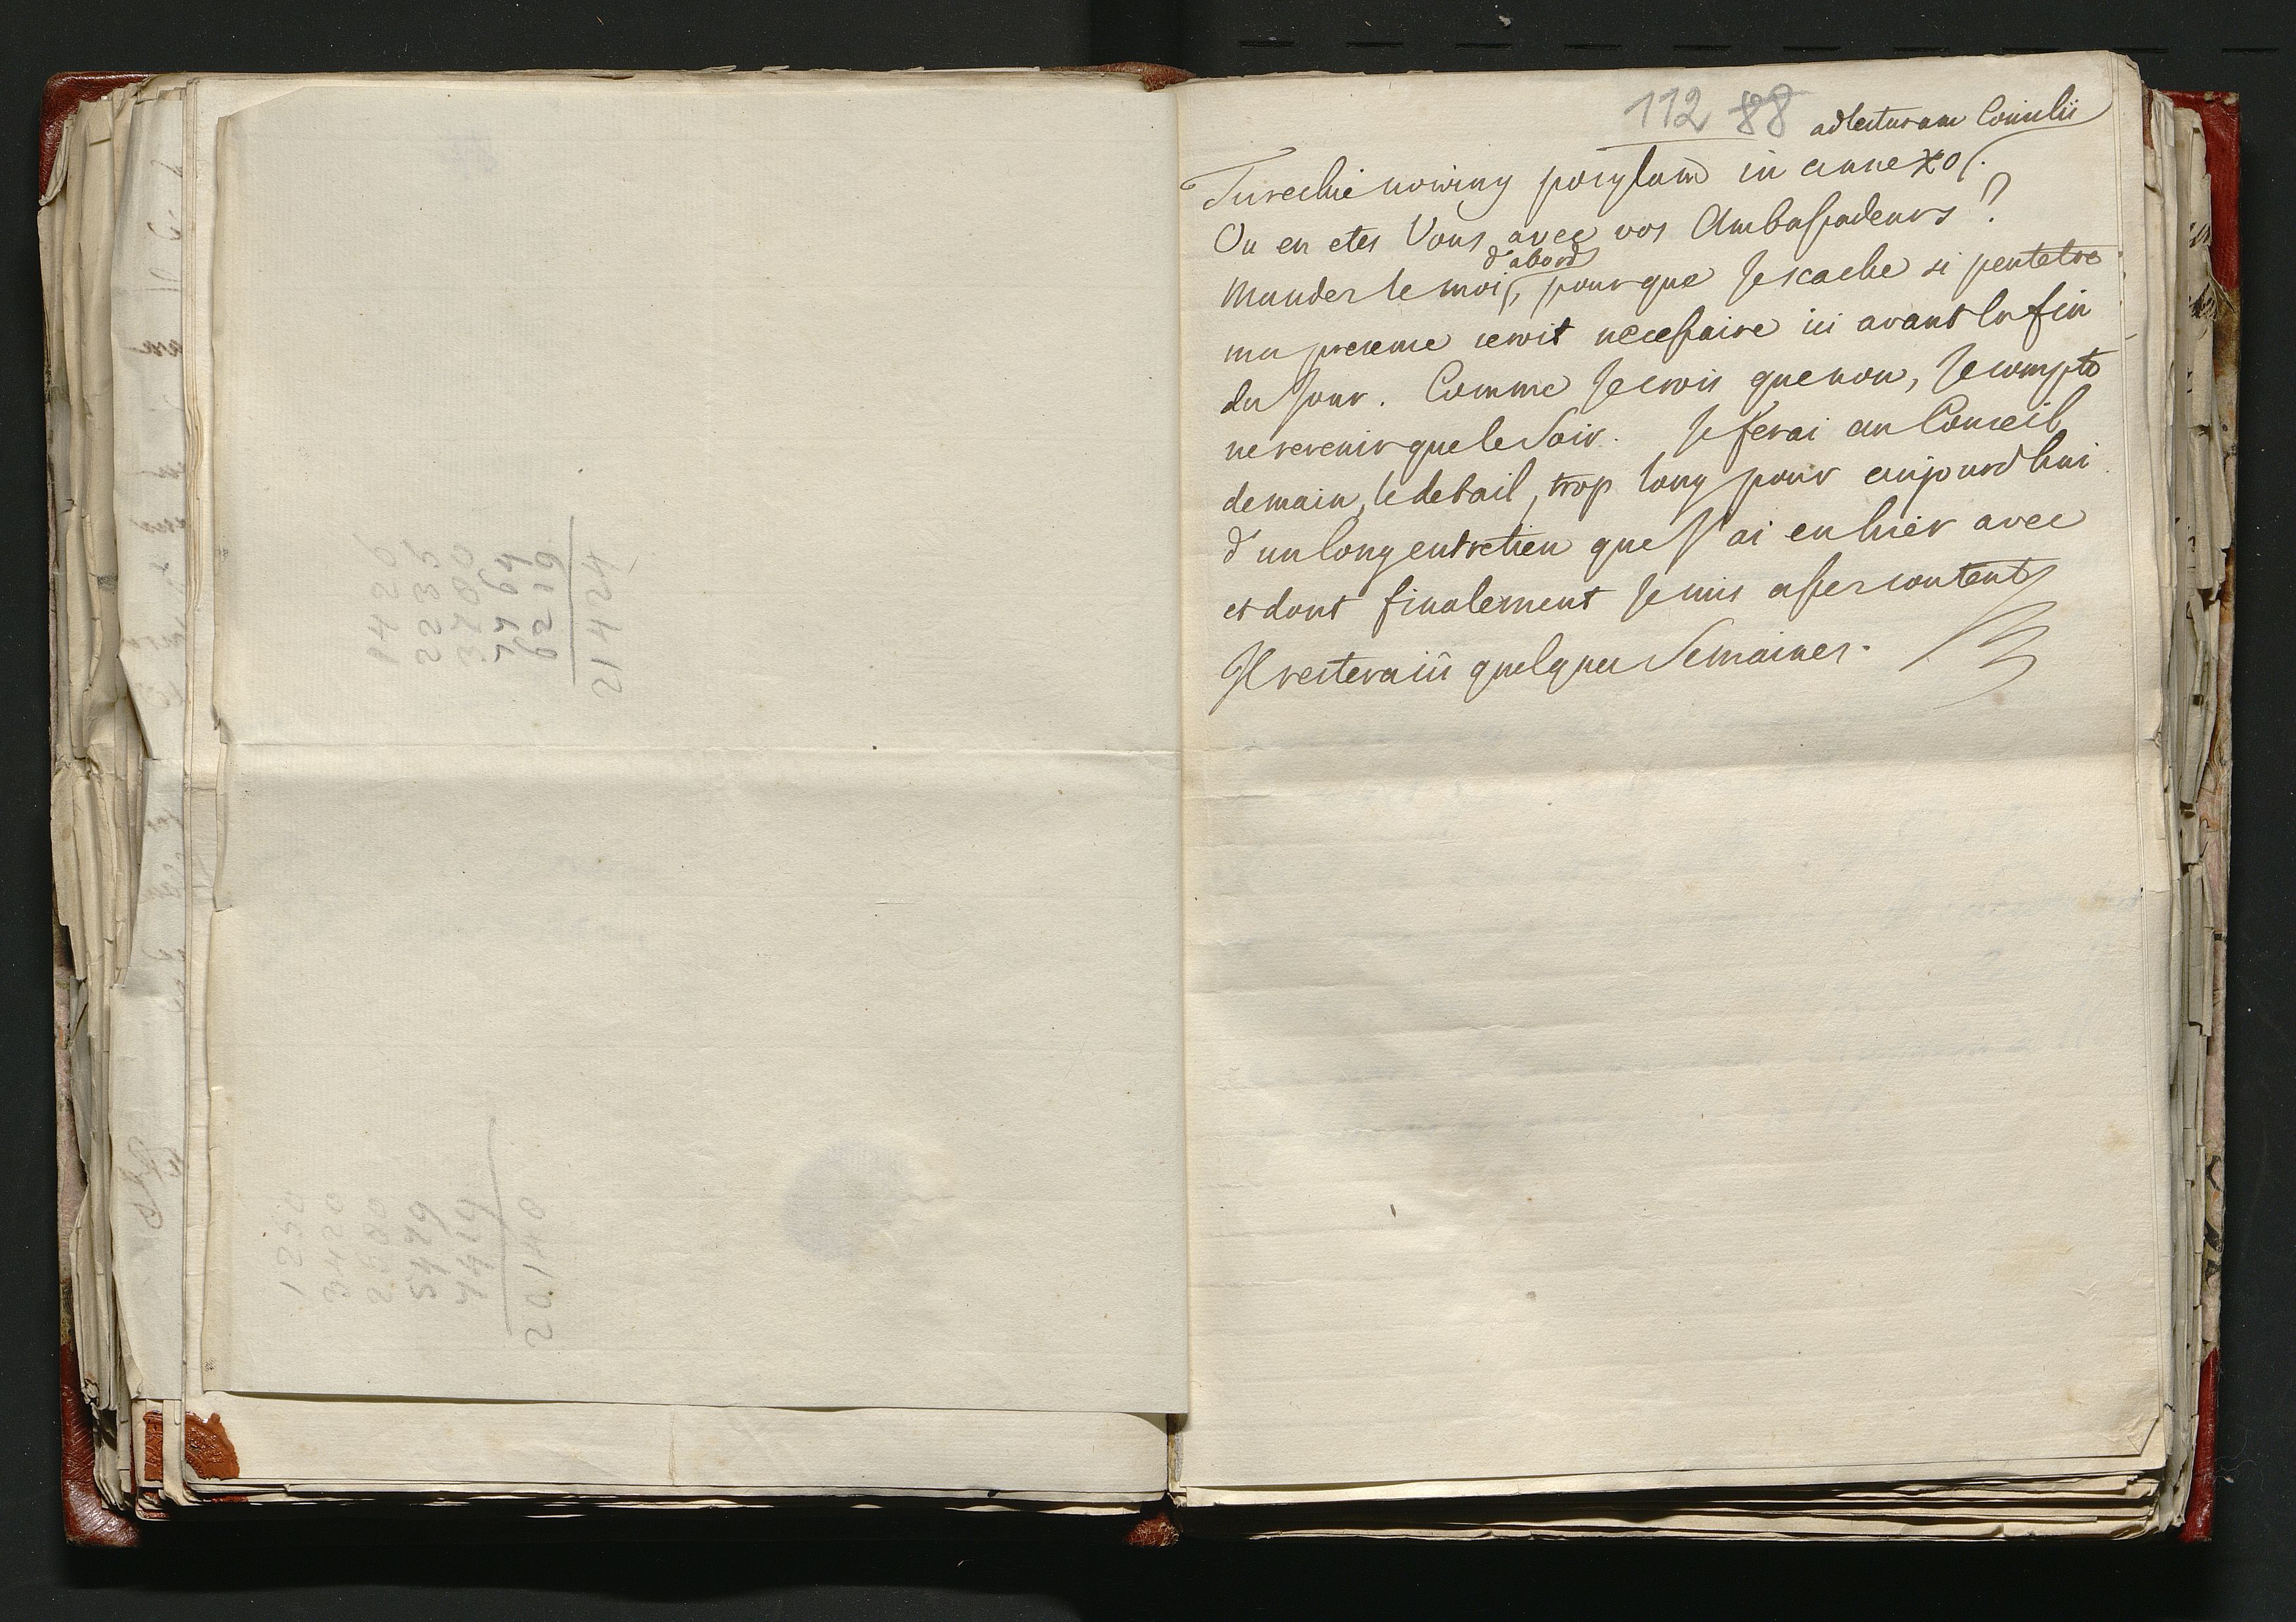 1426
2235
3780
7764
6219
21424
1250
3420
2580
5499
7419
20140
112 88 ad lecturam Consilii
Tureckie nowiny posylam in annexo.
Ou en etes Vous avec vos Ambassadeurs?
d'abord
Mandez le moi, pour que Je scache si peutetre
ma presence seroit necessaire ici avant la fin
du Jour. Comme Je crois que non, Je compte
ne revenir que le Soir. Je ferai au Conseil
demain, le detail, trop long pour aujourdhui
d'un long entretien que J'ai eu hier avec
et dont finalement Je suis assez content
Il restera ici quelques Semaines.